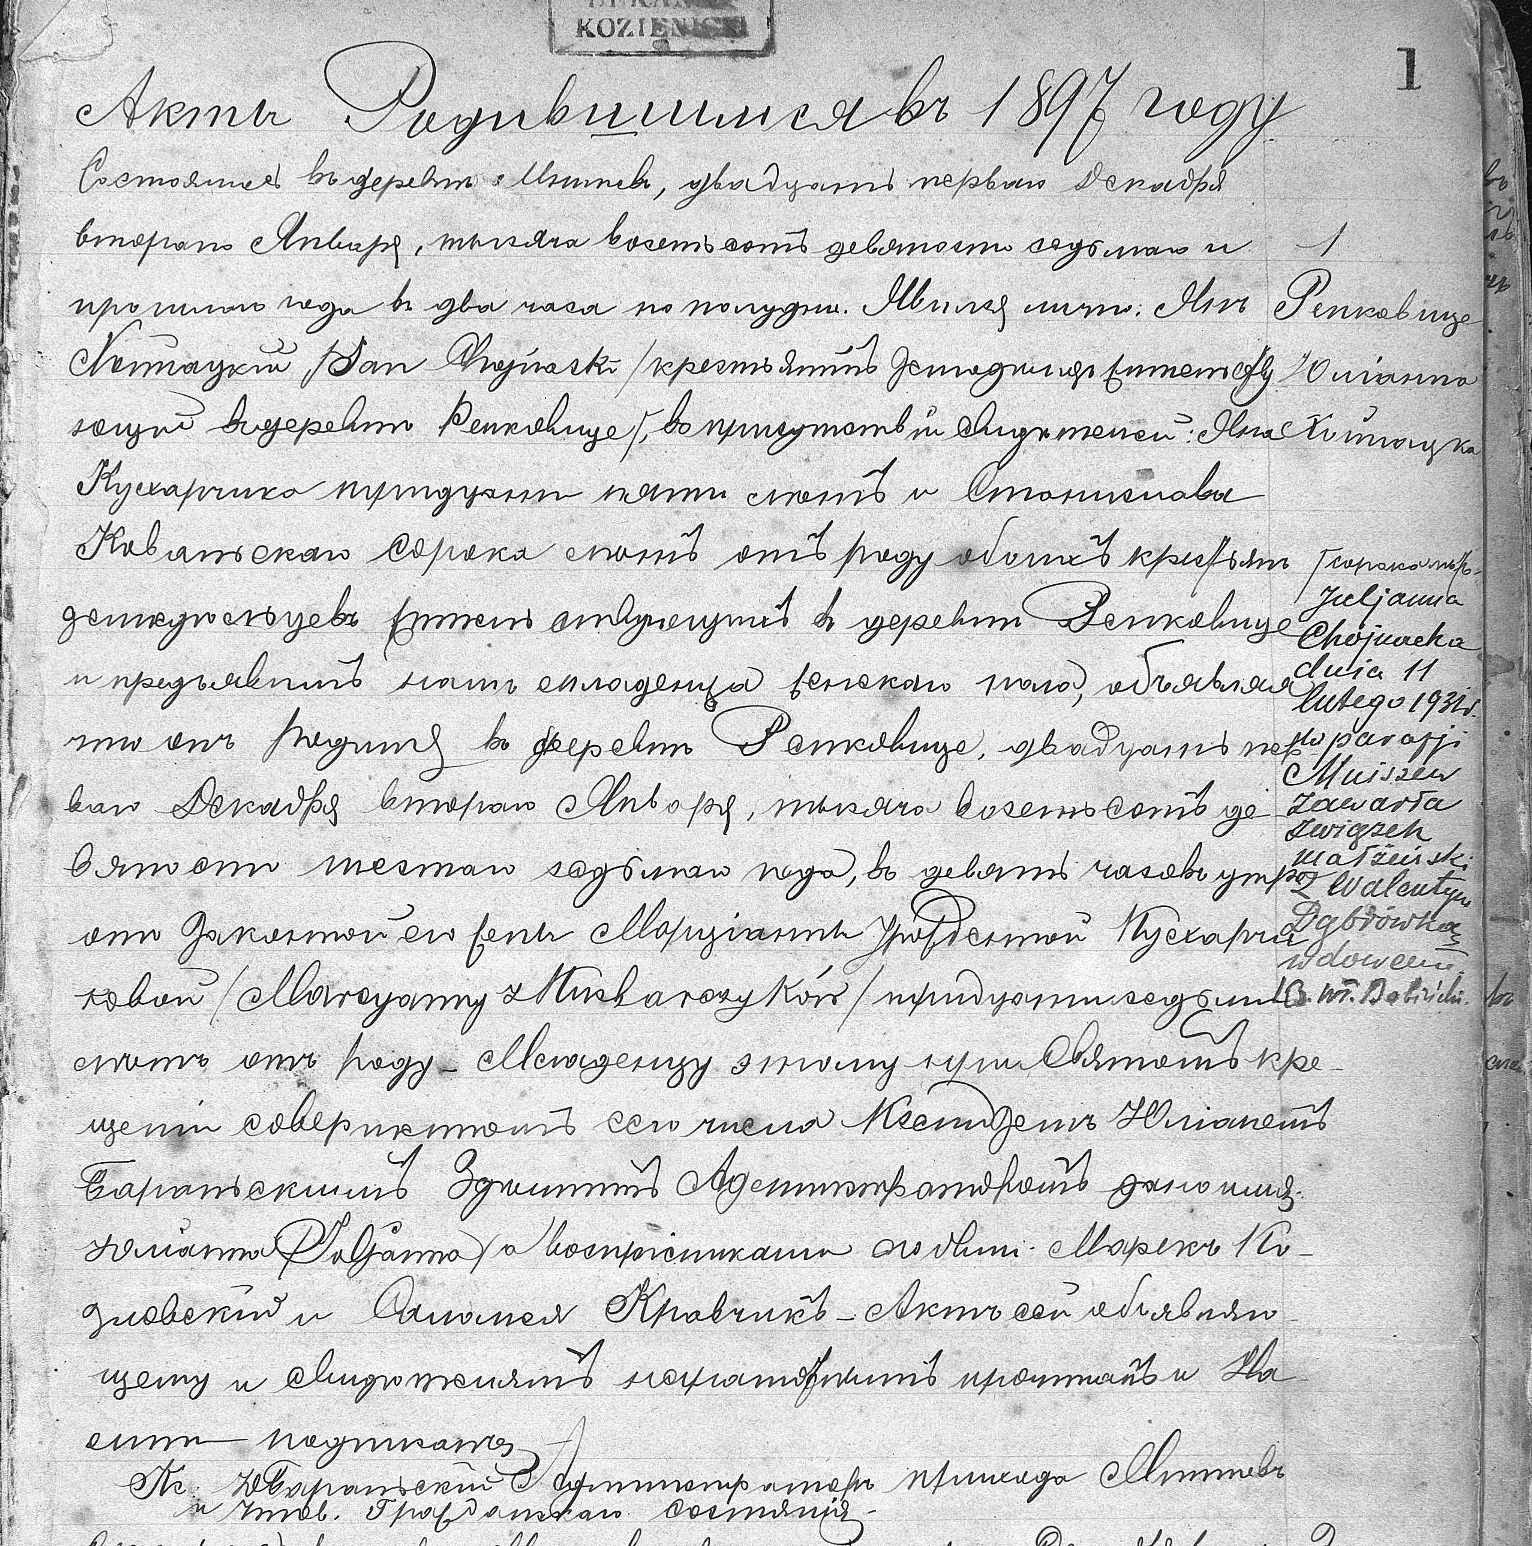 DEKANAT
KOZIENICKI
1
Акты Родившимся въ 1897 году
Состоялся въ деревнѣ Мнишевъ, двадцать перваго Декабря
втораго Января, тысяча восемьсотъ девяносто седьмаго и
прошлаго года въ два часа по полудни. Явился лично: Янъ
Хойнацкій /Jan Chojnacki/ крестьянинъ земледѣлецъ жительству
ющій въ деревнѣ Репковице/, въ присутствіи свидѣтелей: Яна
Кухарчика тридцати пяти лѣтъ и Станислава
Ковальскаго сорока лѣтъ отъ роду обоихъ крестьянъ
земледѣльцевъ жительствующихъ въ деревнѣ Репковице
и предъявилъ намъ младенца женскаго пола, объявляя
что онъ родился въ деревнѣ Репковице, двадцать пер
ваго Декабря втораго Января, тысяча восемьсотъ де
вяносто шестаго седьмаго года, въ девять часовъ утра
отъ законной его жены Марціанны урожденной Кухарчи
ковой /Marcyanny z Kucharczyków/ тридцати седьми
лѣтъ отъ роду – Младенцу этому при Святомъ кре-
щеніи совершенномъ сего числа Ксендземъ Юліаномъ
Бараньскимъ Здѣшнимъ Администраторомъ дано имя
Юліанна /Juljanna/ а воспріемниками были: Марекъ Ко-
зловскій и Саломея Кравчикъ – Актъ сей объявляю-
щему и свидѣтелямъ неграмотнымъ прочитанъ и На
ми подписанъ
Кс. Ю Бараньскій Администраторъ прихода Мнишевъ
и Чинов. Гражданскаго состоянія
1
Репковице
Юліанна
Хойнацка
Juljanna
Chojnacka
dnia 11
lutego 1931 r.
w parafji
Mniszew
zawarła
związek
małżeński
z Walentym
Dąbrówką
wdowcem